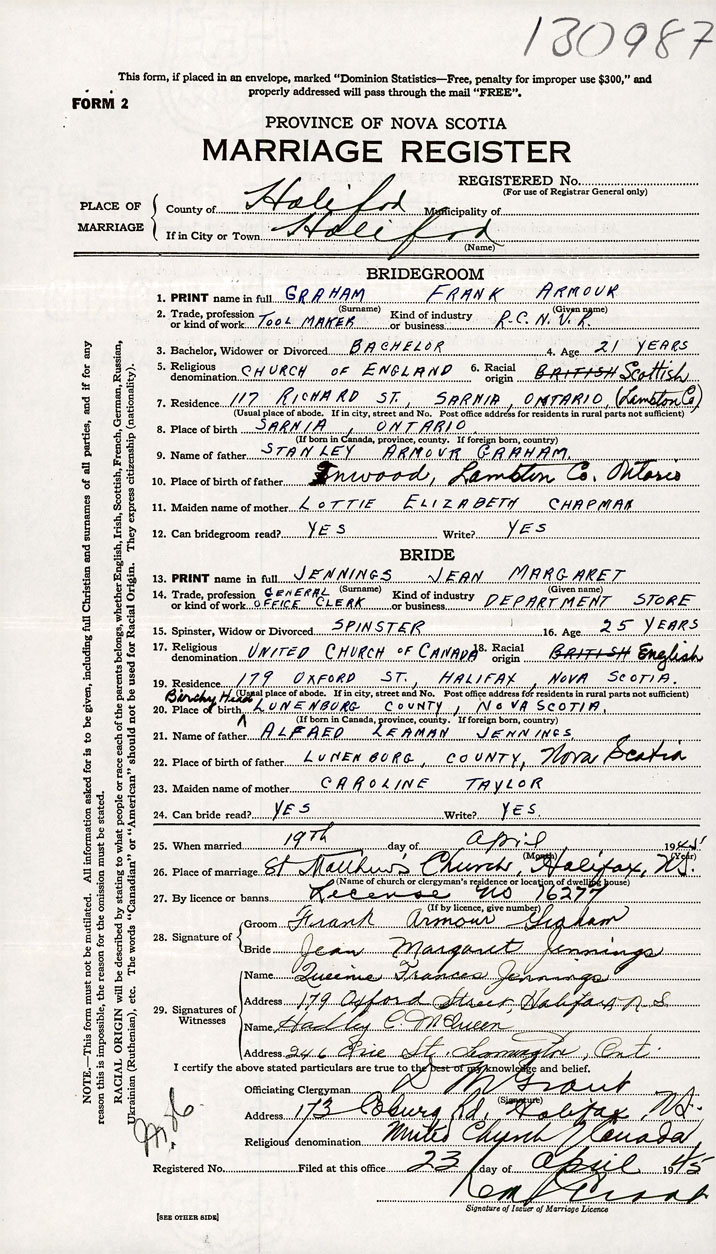 130987
This form, if placed in an envelope, marked "Dominion Statistics—Free, penalty for improper use $300," and
properly addressed will pass through the mail "FREE".
FORM 2
PROVINCE OF NOVA SCOTIA
MARRIAGE REGISTER
REGISTERED No.
(For use of Registrar General only)
PLACE OF MARRIAGE
County of Halifax Municipality of
If in City or Town Halifax
(Name)
BRIDEGROOM
1. PRINT name in full GRAHAM FRANK ARMOUR
(Surname) (Given name)
2. Trade, profession or kind of work TOOL MAKER Kind of industry or business R.C.N.V.R.
3. Bachelor, Widower or Divorced BACHELOR 4. Age 21 YEARS
5. Religious denomination CHURCH OF ENGLAND 6. Racial origin BRITISH Scottish
7. Residence 117 RICHARD ST., SARNIA, ONTARIO, (Lambton Co)
(Usual place of abode. If in city, street and No. Post office address for residents in rural parts not sufficient)
8. Place of birth SARNIA, ONTARIO
(If born in Canada, province, county. If foreign born, country)
9. Name of father STANLEY ARMOUR GRAHAM
10. Place of birth of father Inwood, Lambton Co. Ontario
11. Maiden name of mother LOTTIE ELIZABETH CHAPMAN
12. Can bridegroom read? YES Write? YES
BRIDE
13. PRINT name in full JENNINGS JEAN MARGARET
(Surname) (Given name)
14. Trade, profession or kind of work GENERAL OFFICE CLERK Kind of industry or business DEPARTMENT STORE
15. Spinster, Widow or Divorced SPINSTER 16. Age 25 YEARS
17. Religious denomination UNITED CHURCH OF CANADA 18. Racial origin BRITISH English
19. Residence 179 OXFORD ST., HALIFAX, NOVA SCOTIA.
(Usual place of abode. If in city, street and No. Post office address for residents in rural parts not sufficient)
20. Place of birth Birchy Head LUNENBURG COUNTY, NOVA SCOTIA.
(If born in Canada, province, county. If foreign born, country)
21. Name of father ALFRED LEAMAN JENNINGS
22. Place of birth of father LUNENBURG, COUNTY, Nova Scotia
23. Maiden name of mother CAROLINE TAYLOR
24. Can bride read? YES Write? YES.
25. When married 19TH day of April 1945
(Month) (Year)
26. Place of marriage St Matthew's Church, Halifax, N.S.
(Name of church or clergyman's residence or location of dwelling house)
27. By licence or banns License no 16277
(If by licence, give number)
28. Signature of
Groom Frank Armour Graham
Bride Jean Margaret Jennings
29. Signatures of Witnesses
Name Frances Jennings
Address 179 Oxford Street, Halifax N S
Name Hadley C. McQueen
Address 246 Erie St. Leamington, Ont.
I certify the above stated particulars are true to the best of my knowledge and belief.
Officiating Clergyman Grant
(Signature)
Address 173 Coburg Rd, Halifax, N.S.
Religious denomination United Church Canada
Registered No. Filed at this office 23 day of April 1945
Signature of Issuer of Marriage Licence
[SEE OTHER SIDE]
NOTE.—This form must not be mutilated. All information asked for is to be given, including full Christian and surnames of all parties, and if for any
reason this is impossible, the reason for the omission must be stated.
RACIAL ORIGIN will be described by stating to what people or race each of the parents belongs, whether English, Irish, Scottish, French, German, Russian,
Ukrainian (Ruthenian), etc. The words "Canadian" or "American" should not be used for Racial Origin. They express citizenship (nationality).